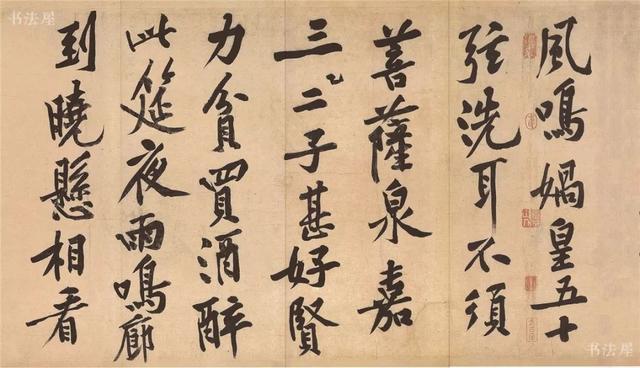 书法屋
風鳴媧皇五十
弦洗耳不須
菩薩泉嘉
三二子甚好賢
力貧買酒醉
此筵夜雨鳴廊
到曉懸相看
书法屋